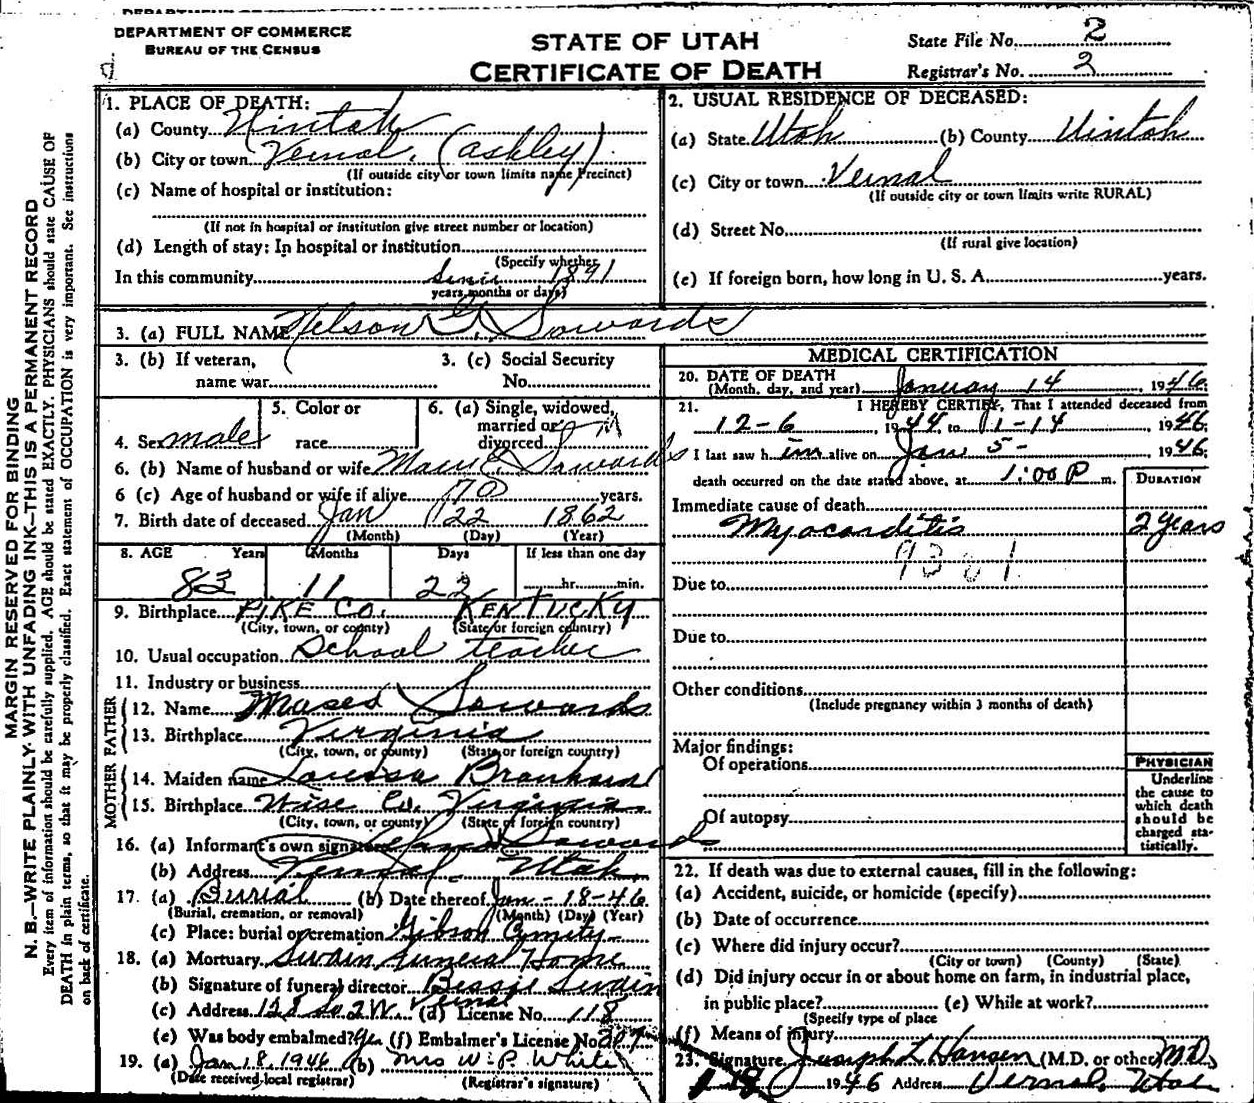 DEPARTMENT OF COMMERCE
BUREAU OF THE CENSUS
STATE OF UTAH
CERTIFICATE OF DEATH
State File No. 2
Registrar's No. 2
MARGIN RESERVED FOR BINDING
N. B.—WRITE PLAINLY WITH UNFADING INK—THIS IS A PERMANENT RECORD
Every item of information should be carefully supplied. AGE should be stated EXACTLY. PHYSICIANS should state CAUSE OF
DEATH in plain terms, so that it may be properly classified. Exact statement of OCCUPATION is very important. See instructions
on back of certificate.
1. PLACE OF DEATH:
(a) County Uintah
(b) City or town Vernal. (Ashley)
(If outside city or town limits name Precinct)
(c) Name of hospital or institution:
(If not in hospital or institution give street number or location)
(d) Length of stay: In hospital or institution
(Specify whether
In this community since 1891
years, months or days)
2. USUAL RESIDENCE OF DECEASED:
(a) State Utah (b) County Uintah
(c) City or town Vernal
(If outside city or town limits write RURAL)
(d) Street No.
(If rural give location)
(e) If foreign born, how long in U. S. A. years.
3. (a) FULL NAME Nelson G. Sowards
3. (b) If veteran,
name war
3. (c) Social Security
No.
4. Sex male
5. Color or
race
6. (a) Single, widowed,
married or
divorced M
6. (b) Name of husband or wife Mary E. Sowards
6 (c) Age of husband or wife if alive 70 years.
7. Birth date of deceased Jan 22 1862
(Month) (Day) (Year)
8. AGE Years Months Days If less than one day
83 11 22 hr. min.
9. Birthplace PIKE CO. KENTUCKY
(City, town, or county) (State or foreign country)
10. Usual occupation School teacher
11. Industry or business
FATHER
12. Name Moses Sowards
13. Birthplace Virginia
(City, town, or county) (State or foreign country)
MOTHER
14. Maiden name Branham
15. Birthplace Wise Co. Virginia
(City, town, or county) (State or foreign country)
16. (a) Informant's own signature Sowards
(b) Address Vernal Utah
17. (a) Burial (b) Date thereof Jan - 18-46
(Burial, cremation, or removal) (Month) (Day) (Year)
(c) Place: burial or cremation Gibson
18. (a) Mortuary Swain Funeral Home
(b) Signature of funeral director Bessie Swain
(c) Address 128 So 2W. Vernal (d) License No. 118
(e) Was body embalmed? Yes (f) Embalmer's License No. 207
19. (a) Jan 18, 1946 (b) Mrs W. P. White
(Date received local registrar) (Registrar's signature)
MEDICAL CERTIFICATION
20. DATE OF DEATH
(Month, day, and year) January 14, 1946;
21. I HEREBY CERTIFY, That I attended deceased from
12-6, 1944, to 1-14 1946;
I last saw him alive on Jan 5- 1946;
death occurred on the date stated above, at 1:00 P m.
DURATION
Immediate cause of death
Myocarditis 2 years
Due to
Due to
Other conditions
(Include pregnancy within 3 months of death)
Major findings:
Of operations
Of autopsy
PHYSICIAN
Underline
the cause to
which death
should be
charged sta-
tistically.
22. If death was due to external causes, fill in the following:
(a) Accident, suicide, or homicide (specify)
(b) Date of occurrence
(c) Where did injury occur?
(City or town) (County) (State)
(d) Did injury occur in or about home on farm, in industrial place,
in public place? (e) While at work?
(Specify type of place
(f) Means of injury
23. Signature Joseph L Hansen (M.D. or other) M.D.
1946 Address Vernal, Utah